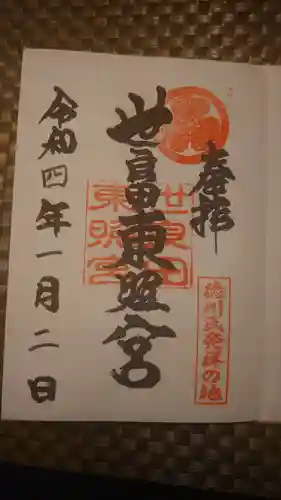 奉拝
徳川氏発祥の地
世良田東照宮
世良田
東照宮
令和四年一月二日